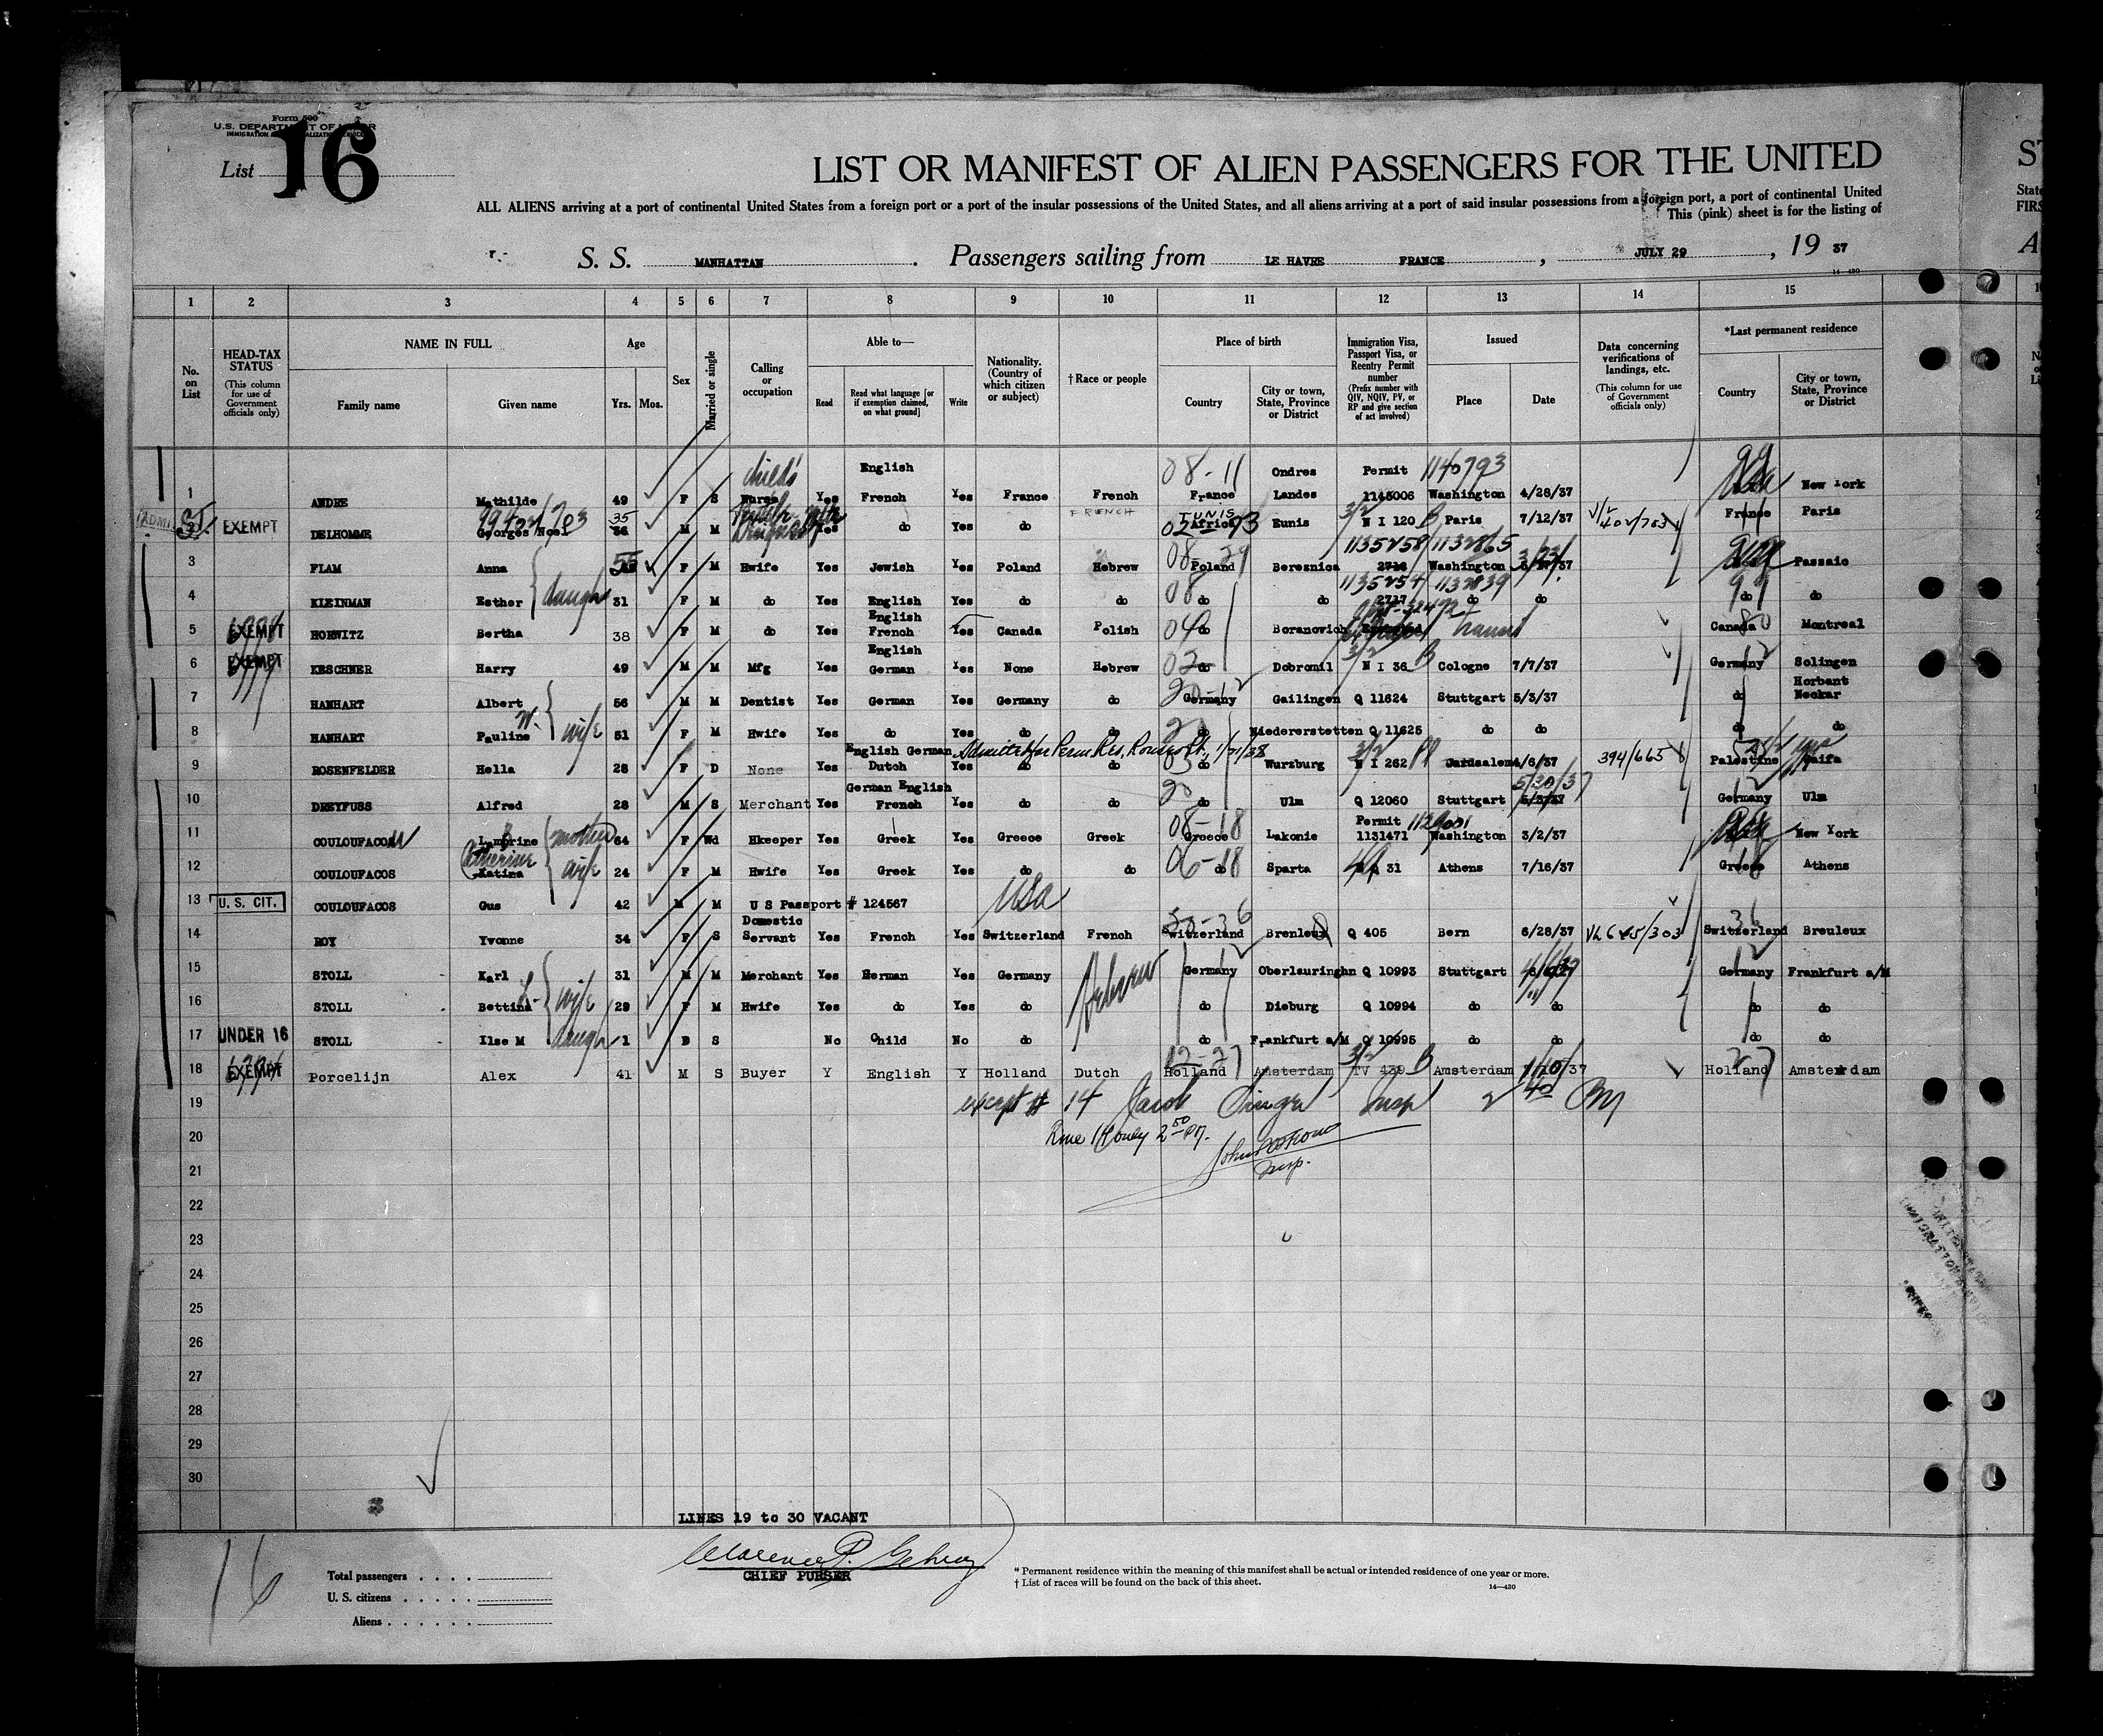 Form 500
U.S. DEPARTMENT OF LABOR
List 16
LIST OR MANIFEST OF ALIEN PASSENGERS FOR THE UNITED
ALL ALIENS arriving at a port of continental United States from a foreign port or a port of the insular possessions of the United States, and all aliens arriving at a port of said insular possessions from a foreign port, a port of continental United
This (pink) sheet is for the listing of
S. S. MANHATTAN . Passengers sailing from LE HAVRE FRANCE , JULY 29 , 19 37
14-430
1 2 3 4 5 6 7 8 9 10 11 12 13 14 15
No. on List
HEAD-TAX STATUS (This column for use of Government officials only)
NAME IN FULL Family name Given name
Age Yrs. Mos.
Sex
Married or single
Calling or occupation
Able to— Read Read what language [or if exemption claimed, on what ground] Write
Nationality. (Country of which citizen or subject)
†Race or people
Place of birth Country City or town, State, Province or District
Immigration Visa, Passport Visa, or Reentry Permit number (Prefix number with QIV, NQIV, PV, or RP and give section of act involved)
Issued Place Date
Data concerning verifications of landings, etc. (This column for use of Government officials only)
*Last permanent residence Country City or town, State, Province or District
child's English 08-11 Ondres Permit 1140793 99
1 ANDRE Mathilde 49 F S Nurse Yes French Yes France French France Landes 1145006 Washington 4/28/37 New York
35 FRENCH TUNIS 3/2
2 EXEMPT DELHOMME Georges Noel 36 M M Yes do Yes do 02 Africa 93 Eunis N I 120 B Paris 7/12/37 402/703 France Paris
55 08-29 1135258 1132865
3 FLAM Anna F M Hwife Yes Jewish Yes Poland Hebrew Poland Bereznica Washington Passaic
1135254 1132839 99
4 KLEINMAN Esther daugh 31 F M do Yes English Yes do do 08 do do 2717 do do do do
English
5 EXEMPT HORWITZ Bertha 38 F M do Yes French Yes Canada Polish 04 do Boranovich Canada 80 Montreal
English 3/2 B
6 EXEMPT KESCHNER Harry 49 M M Mfg Yes German Yes None Hebrew 02 do Dobromil N I 36 Cologne 7/7/37 Germany Solingen
Horbant
7 HANHART Albert 56 M M Dentist Yes German Yes Germany do Germany Gailingen Q 11624 Stuttgart 5/3/37 do Neckar
8 HANHART Pauline W. wife 51 F M Hwife Yes do Yes do do do Niederstetten Q 11625 do do do do
English German Admitted for Perm Res, 1/31/38 3/2
9 ROSENFELDER Hella 28 F D None Yes Dutch Yes do do 03 do Wurzburg N I 262 Jerusalem 4/6/37 394/665 Palestine Haifa
German English 5/20/37
10 DREYFUSS Alfred 28 M S Merchant Yes French Yes do do 20 do Ulm Q 12060 Stuttgart Germany Ulm
08-18 Permit 1129001
11 COULOUFACOS Lambrine mother 64 F Wd Hkeeper Yes Greek Yes Greece Greek Greece Lakonie 1131471 Washington 3/2/37 New York
Catherine
12 COULOUFACOS Katina wife 24 F M Hwife Yes Greek Yes do do 06-18 do Sparta 31 Athens 7/16/37 Greece Athens
13 U. S. CIT. COULOUFACOS Gus 42 M M U S Passport # 124567 USA
Domestic 20-36 36
14 ROY Yvonne 34 F S Servant Yes French Yes Switzerland French Switzerland Breuleux Q 405 Bern 6/28/37 VL 645/303 Switzerland Breuleux
15 STOLL Karl 31 M M Merchant Yes German Yes Germany Hebrew Germany Oberlauringhn Q 10993 Stuttgart Germany Frankfurt a/M
16 STOLL Bettina wife 29 F M Hwife Yes do Yes do do Dieburg Q 10994 do do do do
17 UNDER 16 STOLL Ilse M daugh 1 S No Child No do do Frankfurt a/M Q 10995 do do do do
12-27 3/2
18 EXEMPT Porcelijn Alex 41 M S Buyer Y English Y Holland Dutch Holland Amsterdam TV 439 B Amsterdam 1/10/37 Holland 27 Amsterdam
19 except # 14 Jacob Singer Insp
20
21 Insp.
22
23
24
25
26
27
28
29
30
LINES 19 to 30 VACANT
Clarence P. Gehrig
CHIEF PURSER
16
Total passengers
U. S. citizens
Aliens
* Permanent residence within the meaning of this manifest shall be actual or intended residence of one year or more.
† List of races will be found on the back of this sheet.
14—430